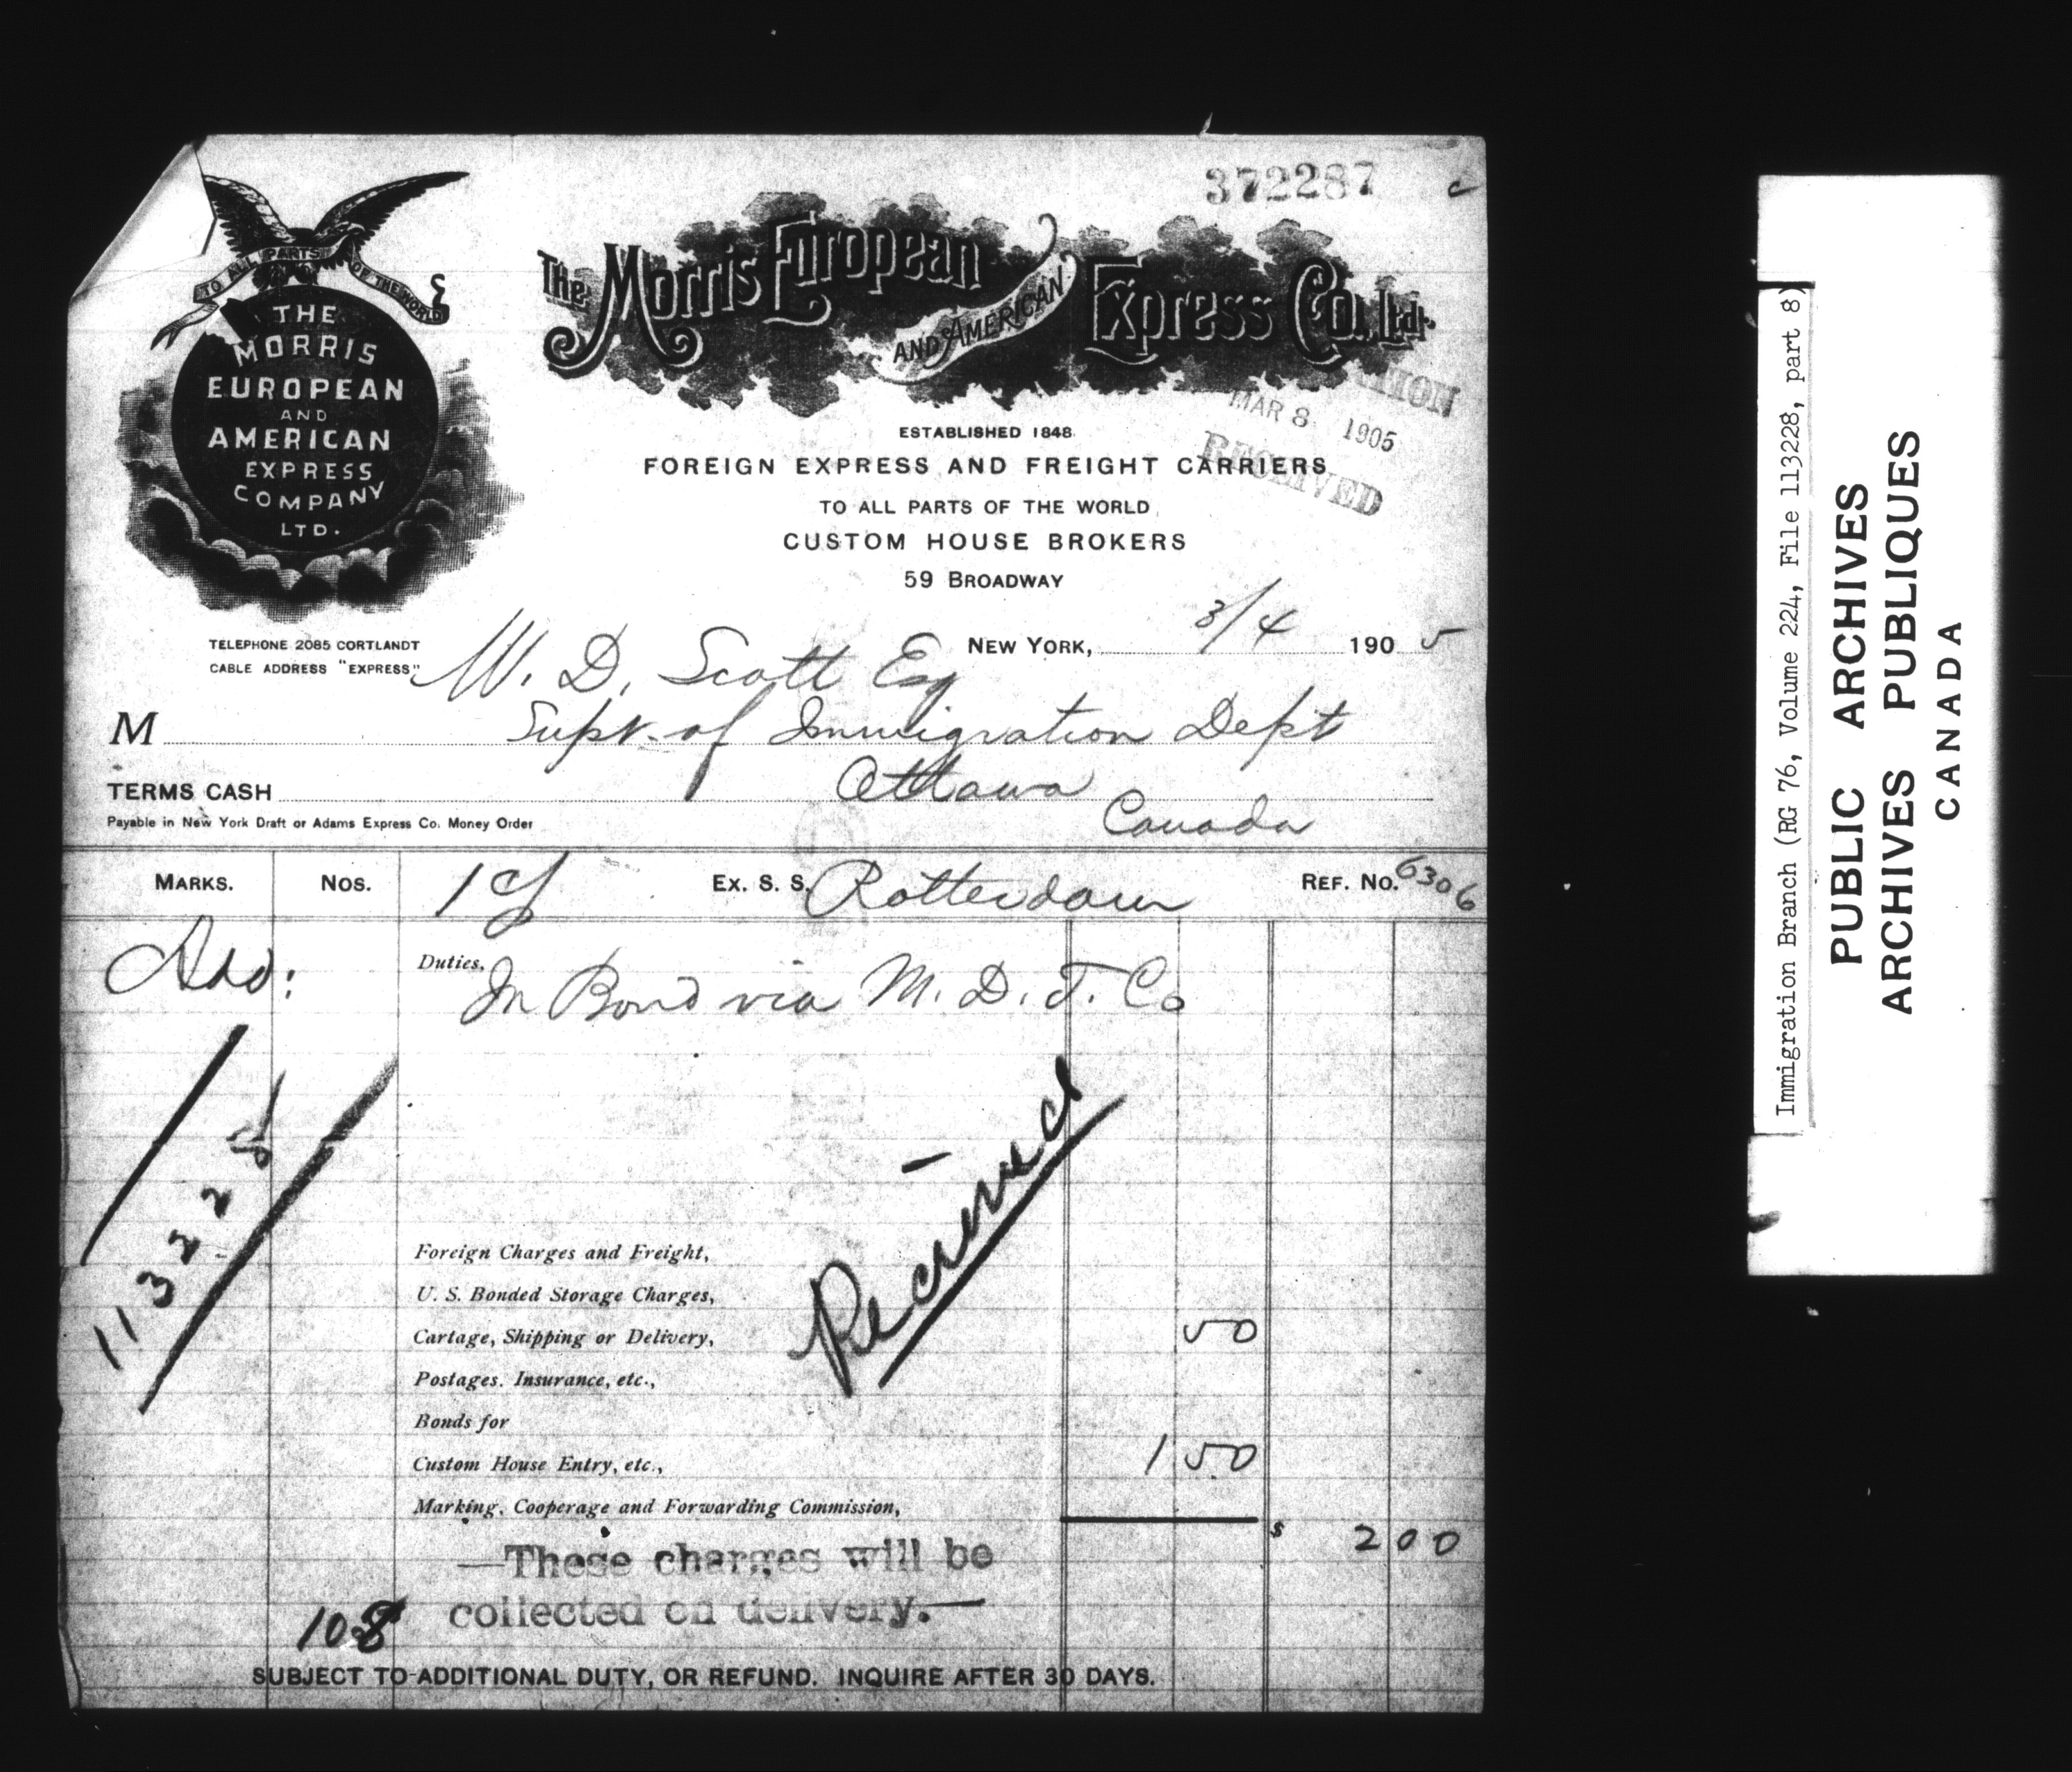 372287
TO ALL PARTS OF THE WORLD
THE
MORRIS
EUROPEAN
AND
AMERICAN
EXPRESS
COMPANY
LTD.
The Morris European AND AMERICAN Express Co., Ltd.
MAR 8 1905
RECEIVED
ESTABLISHED 1848.
FOREIGN EXPRESS AND FREIGHT CARRIERS
TO ALL PARTS OF THE WORLD
CUSTOM HOUSE BROKERS
59 BROADWAY
TELEPHONE 2085 CORTLANDT
CABLE ADDRESS "EXPRESS"
NEW YORK, 3/4 1905
W. D. Scott Esq
M Supt. of Immigration Dept
TERMS CASH Ottawa
Canada
Payable in New York Draft or Adams Express Co. Money Order
MARKS. NOS. 1 Ex. S. S. Rotterdam REF. NO. 6306
Duties, In Bond via M. D. T. Co
Foreign Charges and Freight,
U. S. Bonded Storage Charges,
Cartage, Shipping or Delivery, 50
Postages, Insurance, etc.,
Bonds for
Custom House Entry, etc., 1 50
Marking, Cooperage and Forwarding Commission,
$ 2 00
—These charges will be
collected on delivery.—
SUBJECT TO ADDITIONAL DUTY, OR REFUND. INQUIRE AFTER 30 DAYS.
Immigration Branch (RG 76, Volume 224, File 113228, part 8)
PUBLIC ARCHIVES
ARCHIVES PUBLIQUES
CANADA